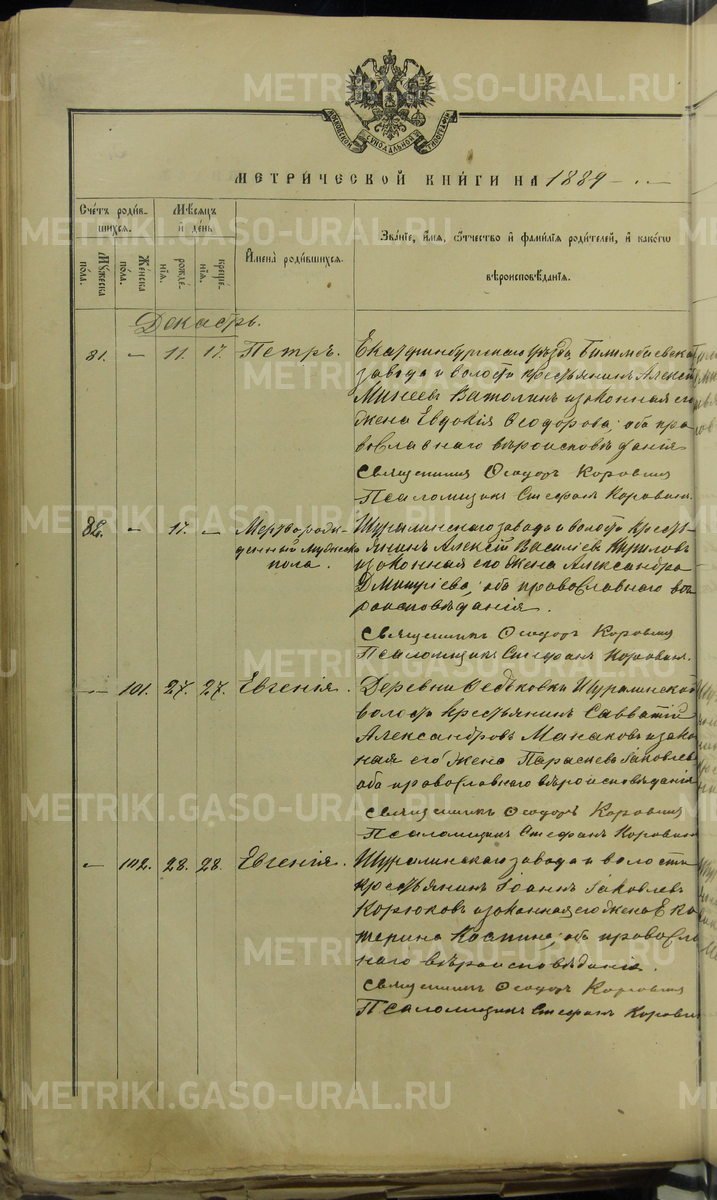 METRIKI.GASO-URAL.RU
МОСКОВСКОЙ СУНОДАЛЬНОЙ ТИПОГРАФІИ
МЕТРИ́ЧЕСКОЙ КНИ́ГИ НА 1889
Сче́тъ роди́в-
шихся.
Мѣ́сяцъ
и҆ де́нь
И҆мена̀ роди́вшихся.
Зва́нїе, и҆́мя, ѻ҆́тчество и҆ фами́лїя роди́телей, и҆ како́гѡ
вѣроисповѣ́данїя.
Мꙋ́жеска
по́ла.
Же́нска
по́ла.
рожде́-
нїя.
креще́-
нїя.
Декабрь.
81. — 11. 17. Петръ. Екатеринбургскаго уѣзда, Билимбаевскаго
завода и волости крестьянинъ Алексѣй
Минеевъ Ватолинъ и законная его
жена Евдокія Ѳеодорова; оба пра-
вославнаго вѣроисповѣданія
Священникъ Ѳеодоръ Коровинъ
Псаломщикъ Стефанъ Коровинъ.
82. — 17. — Мертворож- Шуралинскаго завода и волости кресть-
денный мужеска янинъ Алексѣй Василіевъ
пола. и законная его жена Александра
Димитріева; оба православнаго вѣ-
роисповѣданія.
Священникъ Ѳеодоръ Коровинъ
Псаломщикъ Стефанъ Коровинъ.
— 101. 27. 27. Евгенія. Деревни Ѳедьковки Шуралинской
волости крестьянинъ Савватій
Александровъ Манаковъ и закон-
ная его жена Параскева Іаковлева
оба православнаго вѣроисповѣданія
Священникъ Ѳеодоръ Коровинъ
Псаломщикъ Стефанъ Коровинъ
— 102. 28. 28. Евгенія. Шуралинскаго завода и волости
крестьянинъ Іоаннъ Іаковлевъ
Корюковъ и законная его жена Ека-
терина; оба правосла-
наго вѣроисповѣданія.
Священникъ Ѳеодоръ Коровинъ
Псаломщикъ Стефанъ Коровинъ